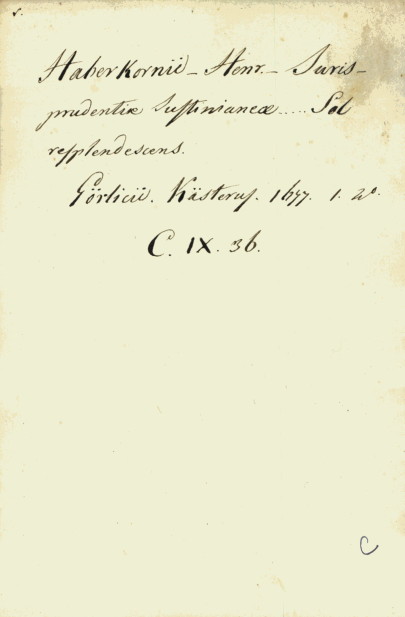 Haberkornii – Henr. – Juris-
prudentiæ Justinianeæ ..... Sol
resplendescens.
Görlicii. Kästerus. 1677. 1. 2º.
C. IX. 36.
C